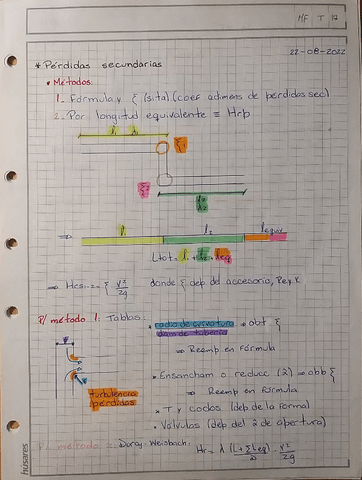 MF T 12
22-08-2022
* Pérdidas secundarias
• Métodos:
1. Fórmula y ξ (sita) (coef adimens de perdidas sec)
2. Por longitud equivalente ≡ Hrp
l1 λ1
ξ1
ξ2
l2
λ2
⇒ l1 l2 lequiv
Ltot = l1 + l2 + leq
⇒ Hrs1-2 = ξ v²/2g donde ξ dep del accesorio, Re y K
P/ método 1: Tablas:
* radio de curvatura / diam de tubería → obt ξ
⇒ Reemp en Fórmula
turbulencia
pérdidas
* Ensancham o reduce (2) ⇒ obt ξ
⇒ Reemp en Fórmula
* T y codos (dep de la forma)
* Válvulas (dep del % de apertura)
P/ método 2: Darcy-Weisbach: Hr = λ (L+ΣLeq)/D · v²/2g
husares